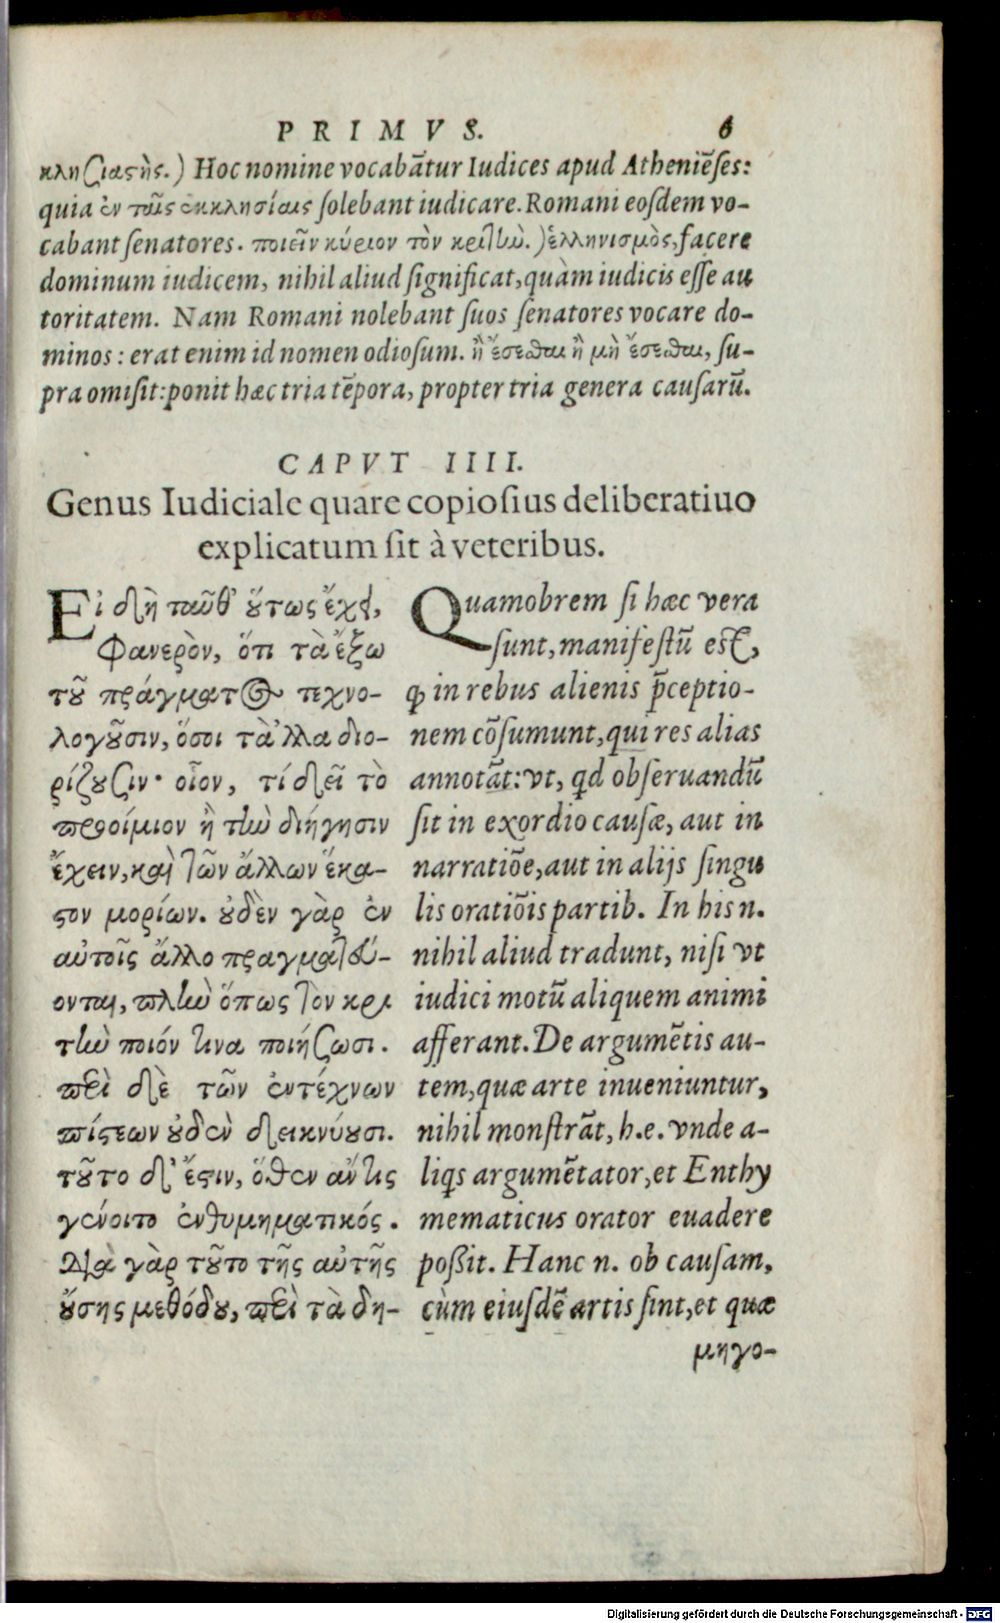 PRIMVS. 6
κλησιαστὴς.) Hoc nomine vocabātur Iudices apud Atheniēses:
quia ἐν ταῖς ἐκκλησίαις solebant iudicare. Romani eosdem vo-
cabant senatores. ποιεῖν κύριον τὸν κριτὴν.) ἑλληνισμὸς, facere
dominum iudicem, nihil aliud significat, quàm iudicis esse au
toritatem. Nam Romani nolebant suos senatores vocare do-
minos: erat enim id nomen odiosum. ἢ ἔσεσθαι ἢ μὴ ἔσεσθαι, su-
pra omisit: ponit hæc tria tēpora, propter tria genera causarū.
CAPVT IIII.
Genus Iudiciale quare copiosius deliberatiuo
explicatum sit à veteribus.
Εἰ δὴ ταῦθ' οὕτως ἔχει,
Φανερὸν, ὅτι τὰ ἔξω
τοῦ πράγματος τεχνο-
λογοῦσιν, ὅσοι τἆλλα διο-
ρίζουσιν· οἷον, τί δεῖ τὸ
προοίμιον ἢ τὴν διήγησιν
ἔχειν, καὶ τῶν ἄλλων ἕκα-
στον μορίων. οὐδὲν γὰρ ἐν
αὐτοῖς ἄλλο πραγματεύ-
ονται, πλὴν ὅπως τὸν κρι
τὴν ποιόν τινα ποιήσωσι.
περὶ δὲ τῶν ἐντέχνων
πίστεων οὐδὲν δεικνύουσι.
τοῦτο δ' ἔστιν, ὅθεν ἄν τις
γένοιτο ἐνθυμηματικός.
Διὰ γὰρ τοῦτο τῆς αὐτῆς
οὔσης μεθόδου, περὶ τὰ δη-
Quamobrem si hæc vera
sunt, manifestū est,
ꝙ in rebus alienis p̄ceptio-
nem cōsumunt, qui res alias
annotāt: vt, qd obseruandū
sit in exordio causæ, aut in
narratiōe, aut in alijs singu
lis oratiōis partib. In his n.
nihil aliud tradunt, nisi vt
iudici motū aliquem animi
afferant. De argumētis au-
tem, quæ arte inueniuntur,
nihil monstrāt, h.e. vnde a-
liqs argumētator, et Enthy
mematicus orator euadere
poßit. Hanc n. ob causam,
cùm eiusdē artis sint, et quæ
μηγο-
Digitalisierung gefördert durch die Deutsche Forschungsgemeinschaft - DFG